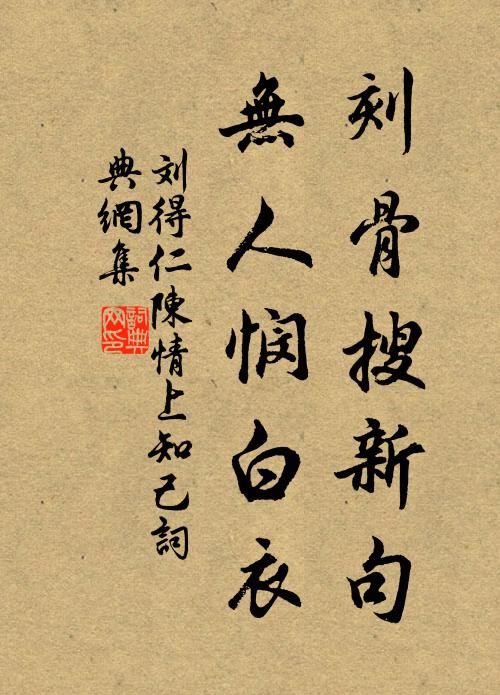 刻骨搜新句
無人悯白衣
刘得仁陳情上知己詞
典網集
詞典
网印